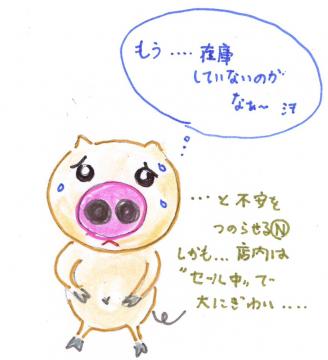 もう‥‥在庫
していないのが
なぁ〜 汗
‥‥と不安を
つのらせるⓃ
しかも‥‥店内は
"セール中"で
大にぎわい‥‥